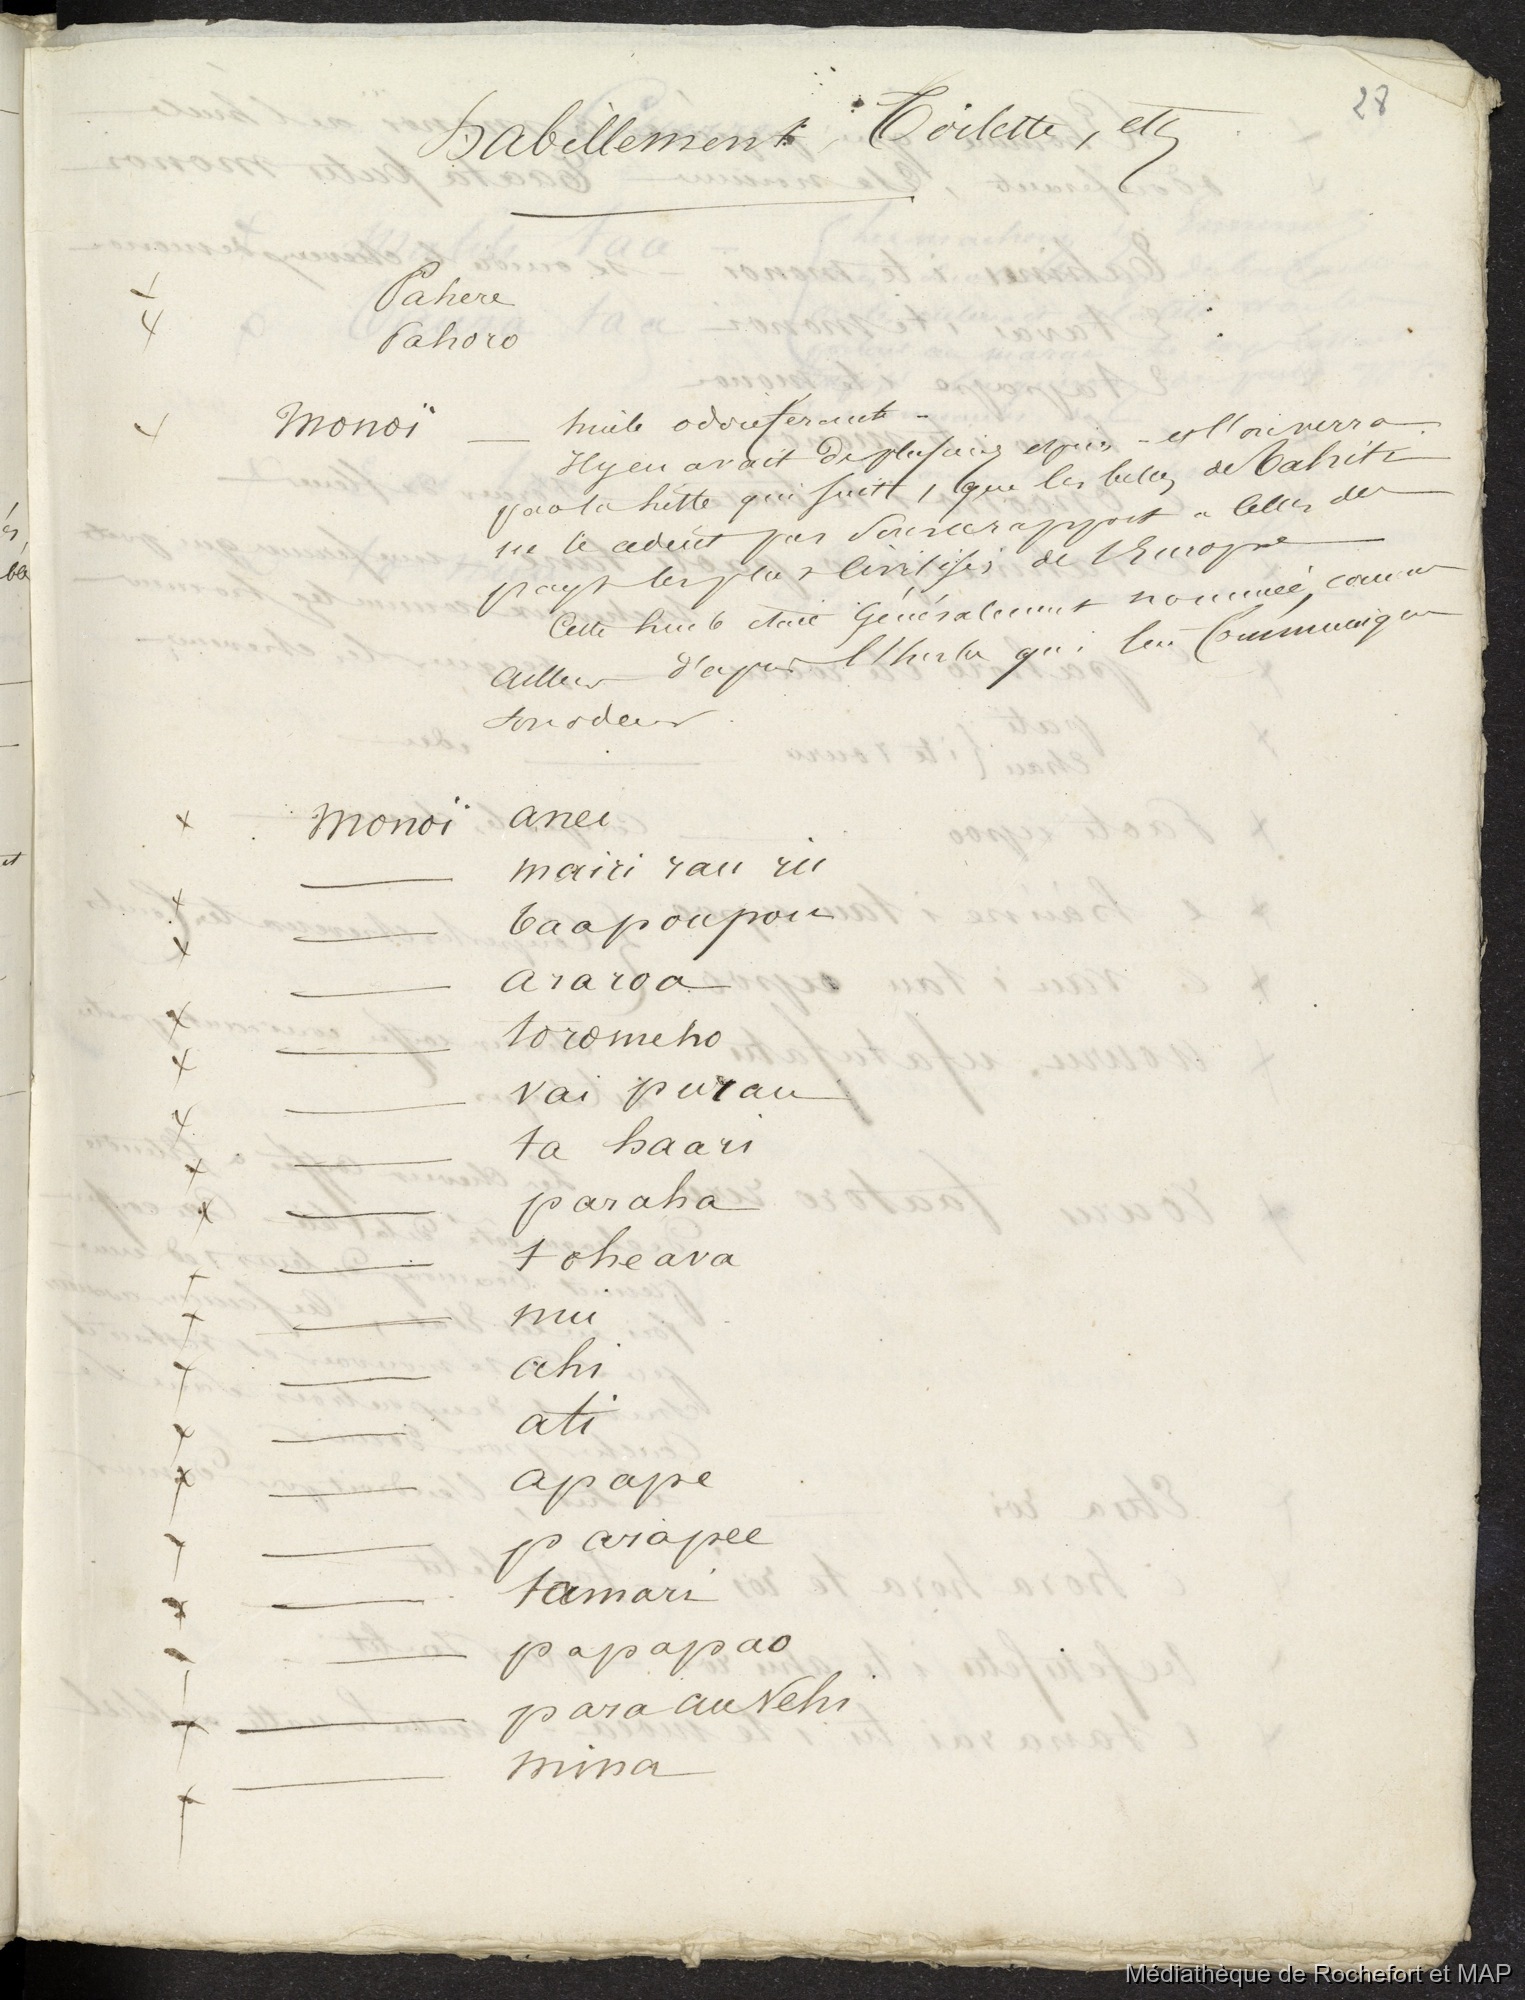 28
habillement, Toilette, etc
Pahere
Pahoro
Monoï — huile odoriferante -
Il y en avait de plusieurs espèces - et l'on verra
par la liste qui suit, que les belles de Tahiti
ne le cèdent pas sous ce rapport a celles des
pays les plus civilisés de l'Europe
Cette huile était Généralement nommée, comme
ailleurs d'après l'herbe qui lui Communique
son odeur.
Monoï anei
— mairi rau rii
— taapoupou
— araroa
— toromeho
— vai purau
— ta haari
— paraha
— toheava
— mii
— ahi
— ati
— apape
— parapee
— tamari
— papapao
— para au vehi
— mina
Médiathèque de Rochefort et MAP